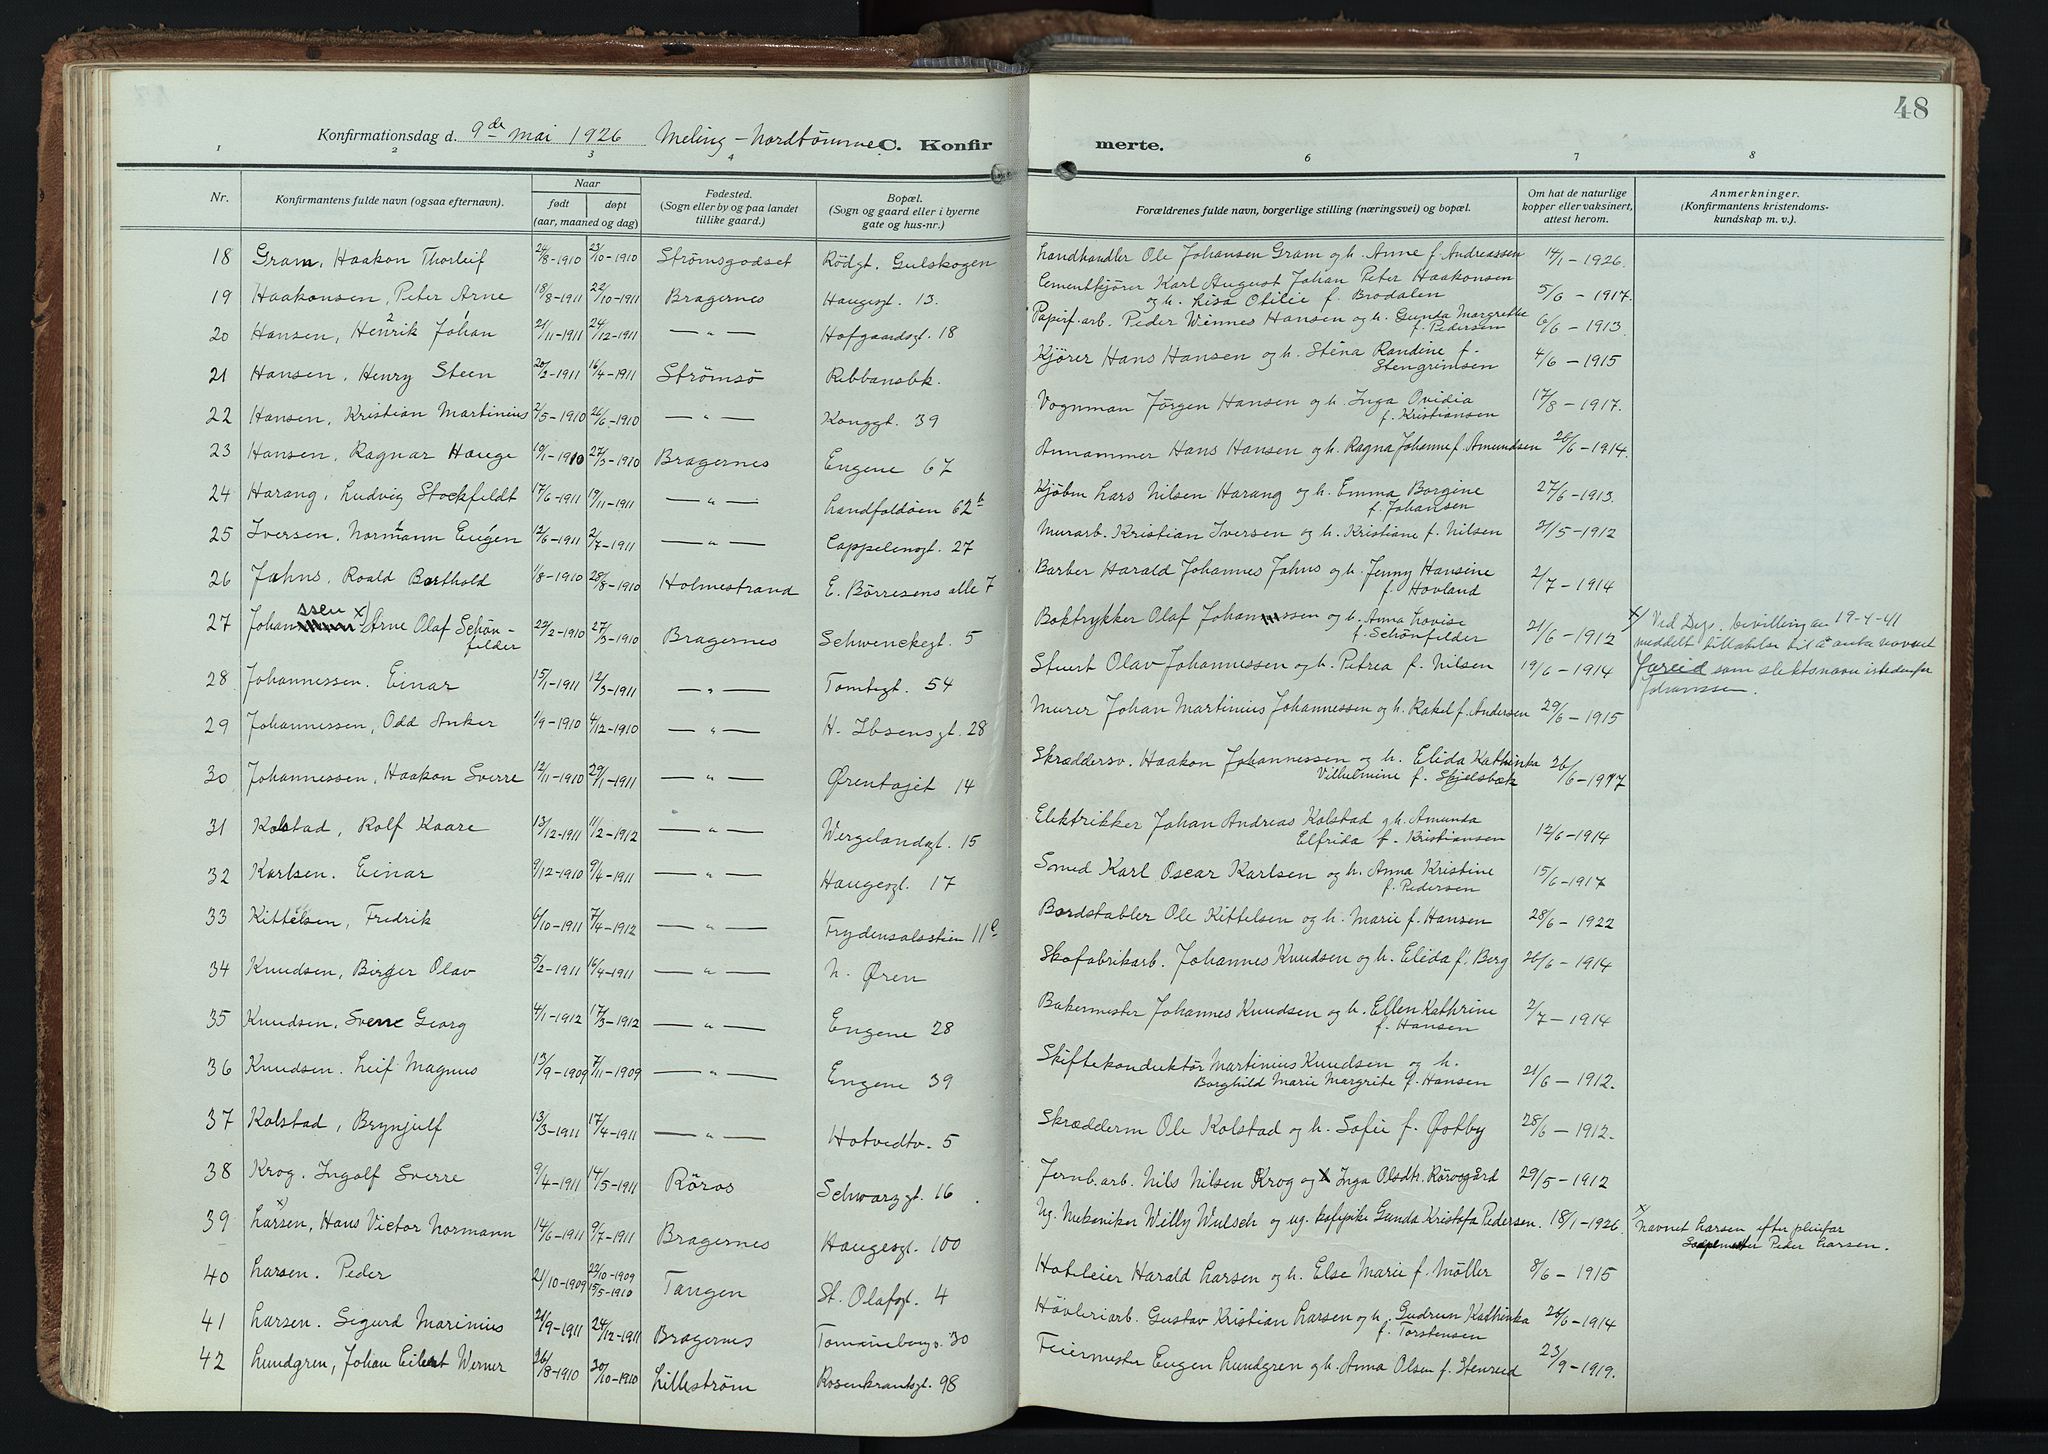 48
Konfirmationsdag d. 9de mai 1926 Meling - Nordtømme C. Konfirmerte.
1 2 3 4 6 7 8
Nr. Konfirmantens fulde navn (ogsaa efternavn). Naar født døpt (aar, maaned og dag) Fødested. (Sogn eller by og paa landet tillike gaard.) Bopæl. (Sogn og gaard eller i byerne gate og hus-nr.) Forældrenes fulde navn, borgerlige stilling (næringsvei) og bopæl. Om hat de naturlige kopper eller vaksinert, attest herom. Anmerkninger. (Konfirmantens kristendomskundskap m. v.).
18 Gram, Haakon Thorleif 24/8-1910 23/10-1910 Strømsgodset Rødgt. Gulskogen Landhandler Ole Johansen Gram og h. Anne f. Andreassen 14/1-1926.
19 Haakonsen, Peter Arne 18/8-1911 22/10-1911 Bragernes Haugesgt. 13. Cementkjører Karl August Johan Peter Haakonsen og h. Lisa Otilie f. Brodalen 5/6-1917.
20 Hansen, Henrik Johan 21/11-1911 24/12-1911 —"— Hofgaardsgt. 18 Papirf.arb. Peder Wennes Hansen og h. Gunda Margrethe f. Pedersen 6/6-1913.
21 Hansen, Henry Steen 20/2-1911 16/4-1911 Strømsø Ribbansbk. Kjører Hans Hansen og h. Sténa Randine f. Stengrimsen 4/6-1915
22 Hansen, Kristian Martinius 2/5-1910 26/6-1910 —"— Konggt. 39 Vognman Jørgen Hansen og h. Inga Ovidia f. Kristiansen 17/8-1917.
23 Hansen, Ragnar Hauge 19/1-1910 27/3-1910 Bragernes Engene 67 Annammer Hans Hansen og h. Ragna Johanne f. Amundsen 26/6-1914.
24 Harang, Ludvig Stockfeldt 17/6-1911 19/11-1911 —"— Landfaldøen 62b Kjøbm Lars Nilsen Harang og h. Emma Borgine f. Johansen 27/6-1913.
25 Iversen, Normann Eugen 12/6-1911 2/7-1911 —"— Cappelensgt. 27 Murarb. Kristian Iversen og h. Kristiane f. Nilsen 2/5-1912
26 Jahns, Roald Barthold 1/8-1910 28/8-1910 Holmestrand E. Børresens alle 7 Barber Harald Johannes Jahns og h. Jenny Hansine f. Hovland 2/7-1914
27 Johanssen x) Arne Olaf Schønfelder 22/2-1910 27/3-1910 Bragernes Schwenckegt. 5 Boktrykker Olaf Johanssen og h. Anna Lovise f. Schønfelder 21/6-1912 x/ Ved Dep. bevilling av 19-4-41 meddelt tillatelse til å anta navnet Jareid som slektsnavn istedenfor Johanssen.
28 Johannessen. Einar 15/1-1911 12/3-1911 —"— Tomtegt. 54 Stuert Olav Johannessen og h. Petrea f. Nilsen 19/6-1914
29 Johannessen, Odd Anker 1/9-1910 4/12-1910 —"— H. Ibsensgt. 28 Murer Johan Martinius Johannessen og h. Rakel f. Andersen 29/6-1915
30 Johannessen, Haakon Sverre 12/11-1910 29/1-1911 —"— Ørentajet 14 Skræddersv. Haakon Johannessen og h. Elida Kathinka Vilhelmine f. Skjelsbæk 26/6-1917
31 Kolstad, Rolf Kaare 13/12-1911 11/2-1912 —"— Wergelandsgt. 15 Elektrikker Johan Andreas Kolstad og h. Amunda Elfrida f. Kristiansen 12/6-1914
32 Karlsen. Einar 9/12-1910 9/4-1911 —"— Haugesgt. 17 Smed Karl Oscar Karlsen og h. Anna Kristine f. Pedersen 15/6-1917
33 Kittelsen, Fredrik 6/10-1911 7/4-1912 —"— Frydensalsstien 11c Bordstabler Ole Kittelsen og h. Marie f. Hansen 28/6-1922
34 Knudsen, Birger Olav 5/2-1911 16/4-1911 —"— N. Øren Skofabrikarb. Johannes Knudsen og h. Elida f. Berg 26/6-1914
35 Knudsen, Sverre Georg 4/1-1912 17/3-1912 —"— Engene 28 Bakermester Johannes Knudsen og h. Ellen Kathrine f. Hansen 2/7-1914
36 Knudsen. Leif Magnus 13/9-1909 7/11-1909 —"— Engene 39 Skiftekonduktør Martinius Knudsen og h. Borghild Marie Margrite f. Hansen 21/6-1912.
37 Kolstad, Brynjulf 13/3-1911 17/4-1911 —"— Hotvedtv. 5 Skrædderm Ole Kolstad og h. Sofie f. Østby 28/6-1912.
38 Krog. Ingolf Sverre 9/4-1911 14/5-1911 Røros Schwarzgt. 16 Jernb.arb. Nils Nilsen Krog og Inga Olsdtr. Rørosgård 29/5-1912
39 Larsen, x) Hans Victor Normann 14/6-1911 9/7-1911 Bragernes Haugesgt. 100 Ug. Mekaniker Willy Wulsch og ug. Gunda Kristofa Pedersen. 18/1-1926 x/ Navnet Larsen efter pleiefar Peder Larsen.
40 Larsen. Peder 21/10-1909 22/10-1909 15/5-1910 Tangen St. Olafsgt. 4 Hoteleier Harald Larsen og h. Else Marie f. Møller 8/6-1915
41 Larsen. Sigurd Marinius 21/9-1911 24/12-1911 Bragernes Tomineborgv. 30 Høvleriarb. Gustav Kristian Larsen og h. Gudrun Kathinka f. Torstensen 26/6-1914
42 Lundgren, Johan Eilert Werner 26/8-1910 30/10-1910 Lillestrøm Rosenkrantsgt. 98 Feiermester Eugen Lundgren og h. Anna Olsen f. Stenseid 23/9-1919.